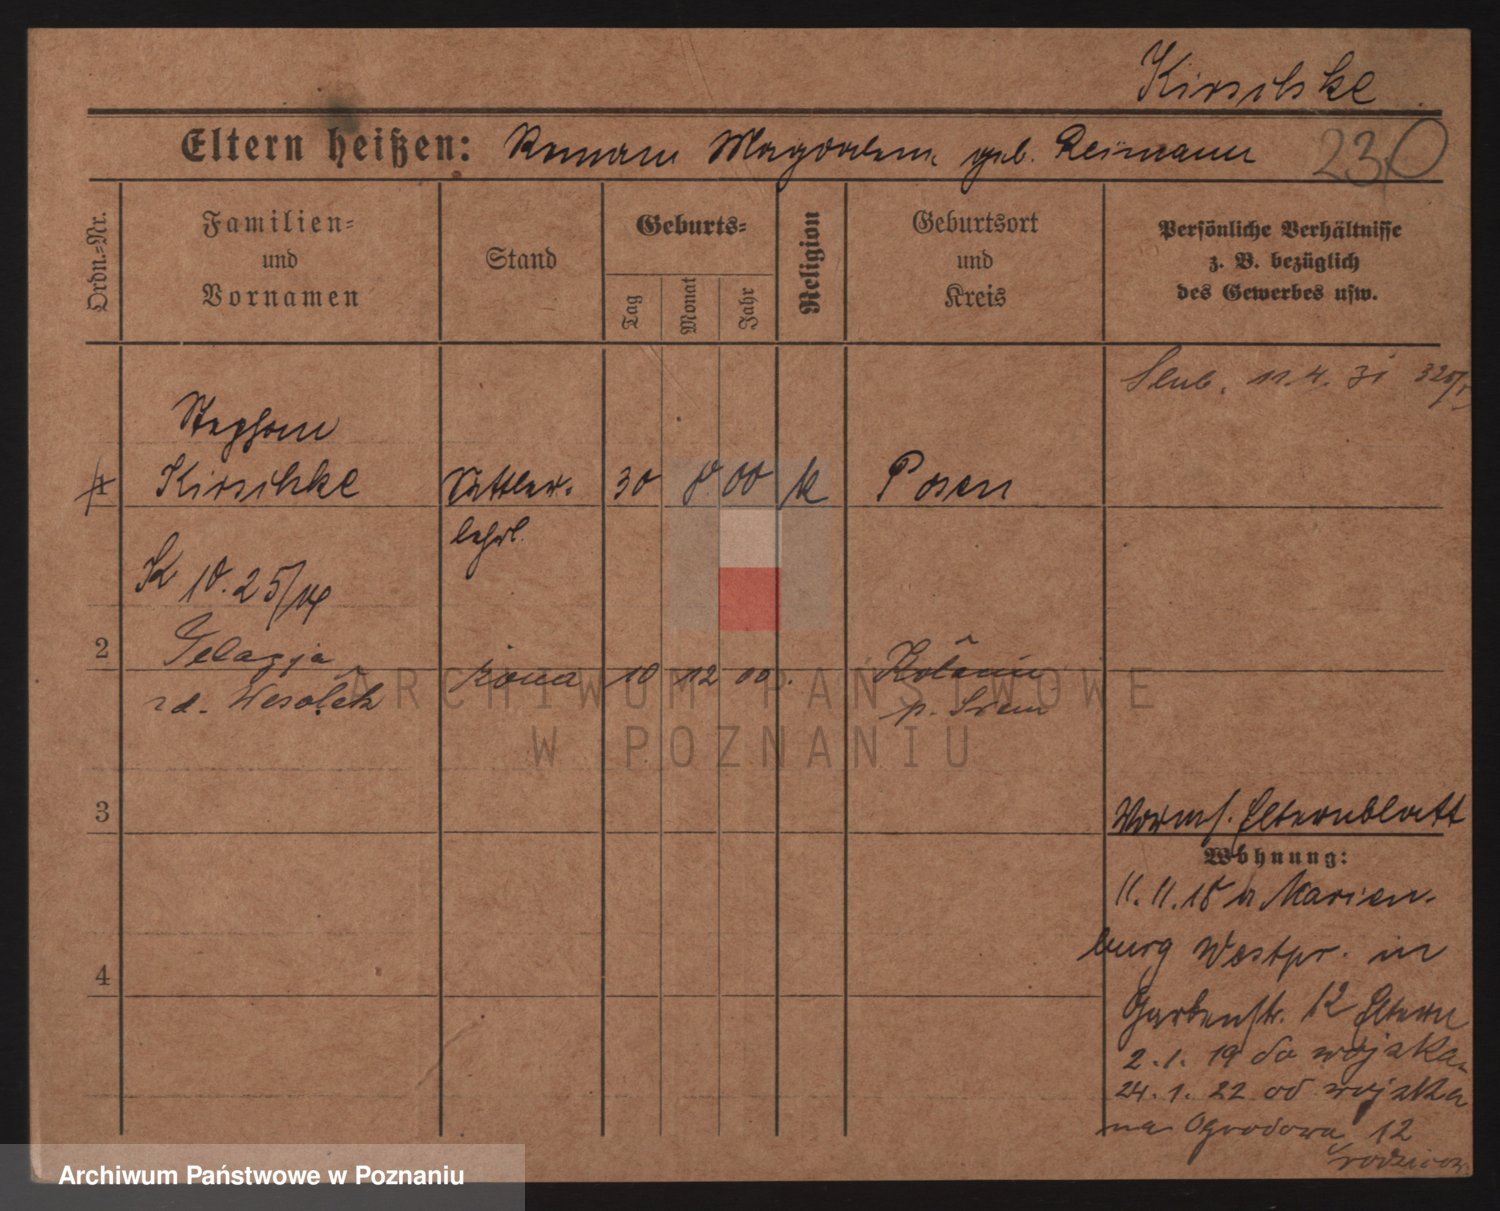 Kirschke
Eltern heißen: Roman Magdalena geb. Reimann 230
Ordn.-Nr.
Familien-
und
Vornamen
Stand
Geburts-
Tag
Monat
Jahr
Religion
Geburtsort
und
Kreis
Persönliche Verhältnisse
z. B. bezüglich
des Gewerbes usw.
Slub. 11.4.31
Stephan
1 Kirschke Sattler- 30 8. 00 k Posen
lehrl.
10.25
2 Pelagja żona 10 12 00.
rd. Wesołek
p. Śrem
3
Elternblatt
Wohnung:
11.11.18 a Marien-
burg Westpr. in
Gartenstr. 12 Eltern
2.1.19 do wojska
24.1.22 od wojska
na Ogrodowa 12
rodzicow.
4
ARCHIWUM PAŃSTWOWE
W POZNANIU
Archiwum Państwowe w Poznaniu